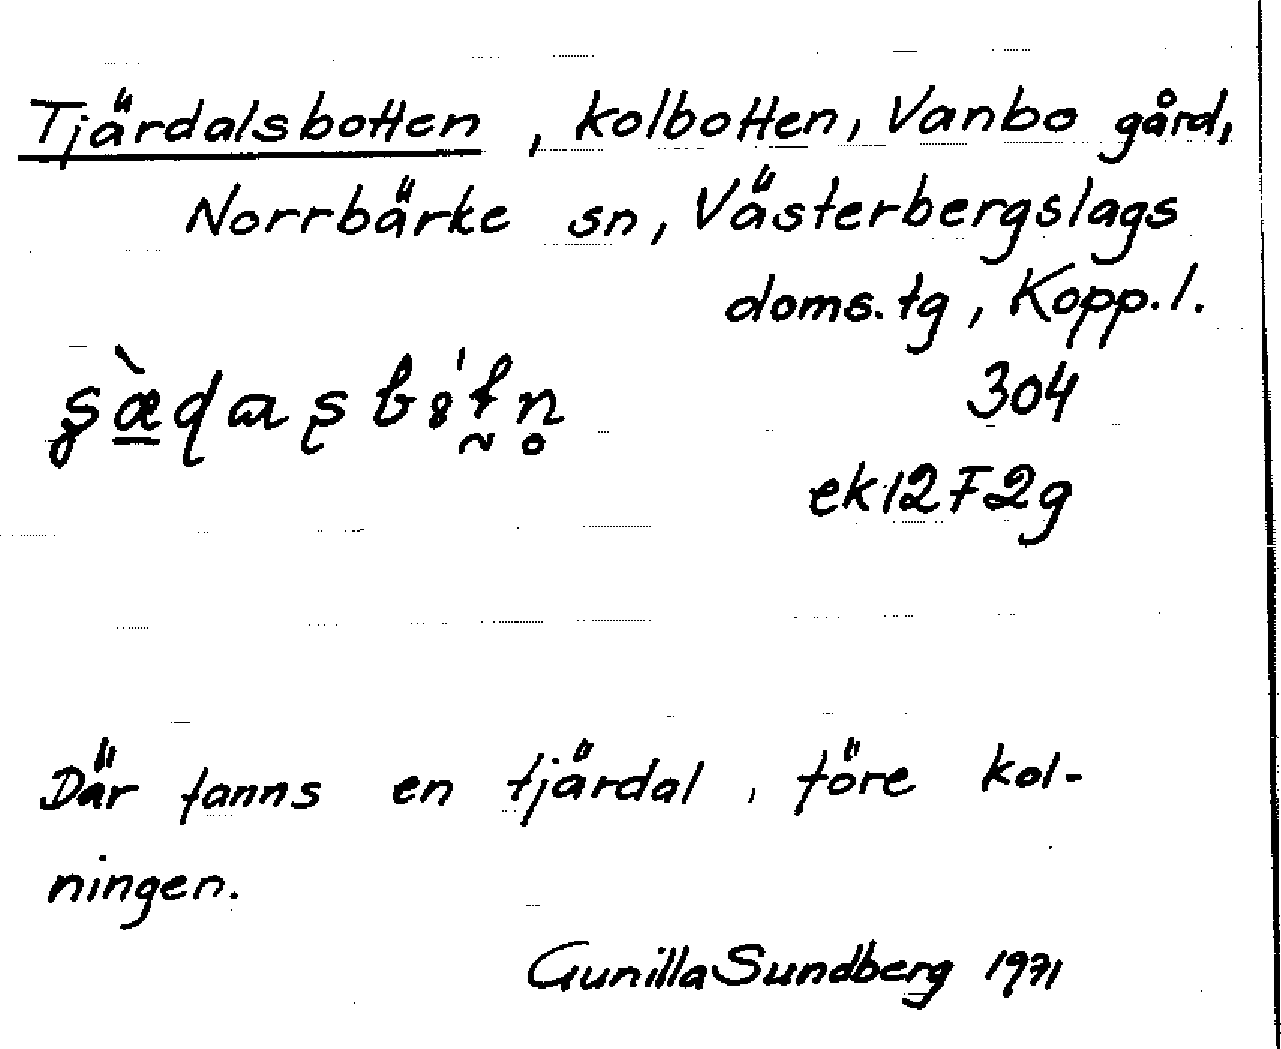 Tjärdalsbotten, kolbotten, Vanbo gård,
Norrbärke sn, Västerbergslags
doms.tg, Kopp.l.
304
ek 12 F 2g
Där fanns en tjärdal, före kol-
ningen.
Gunilla Sundberg 1971